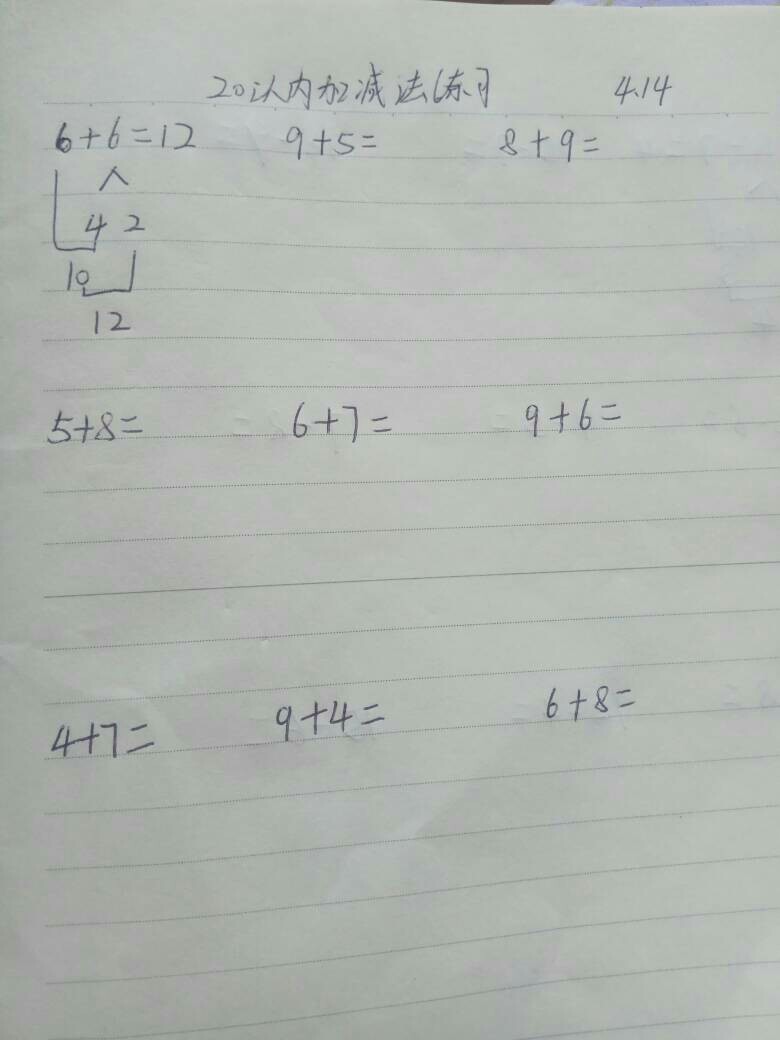 20以内加减法练习 4.14
6+6=12 9+5= 8+9=
4 2
10
12
5+8= 6+7= 9+6=
4+7= 9+4= 6+8=